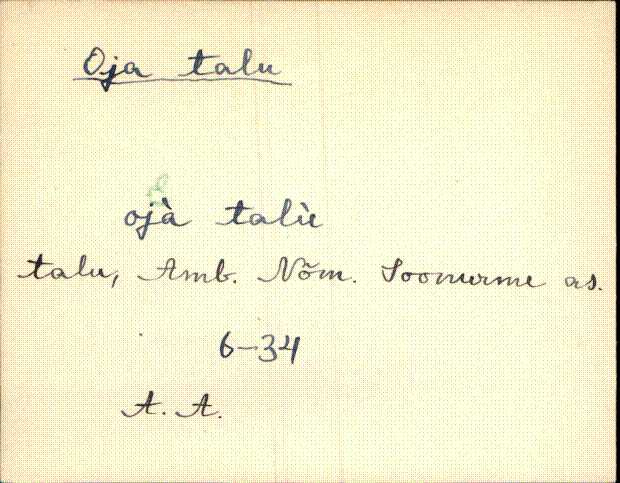 Oja talu
ojà talù
talu, Amb. Nõm. Soonurme as.
6-34
A. A.